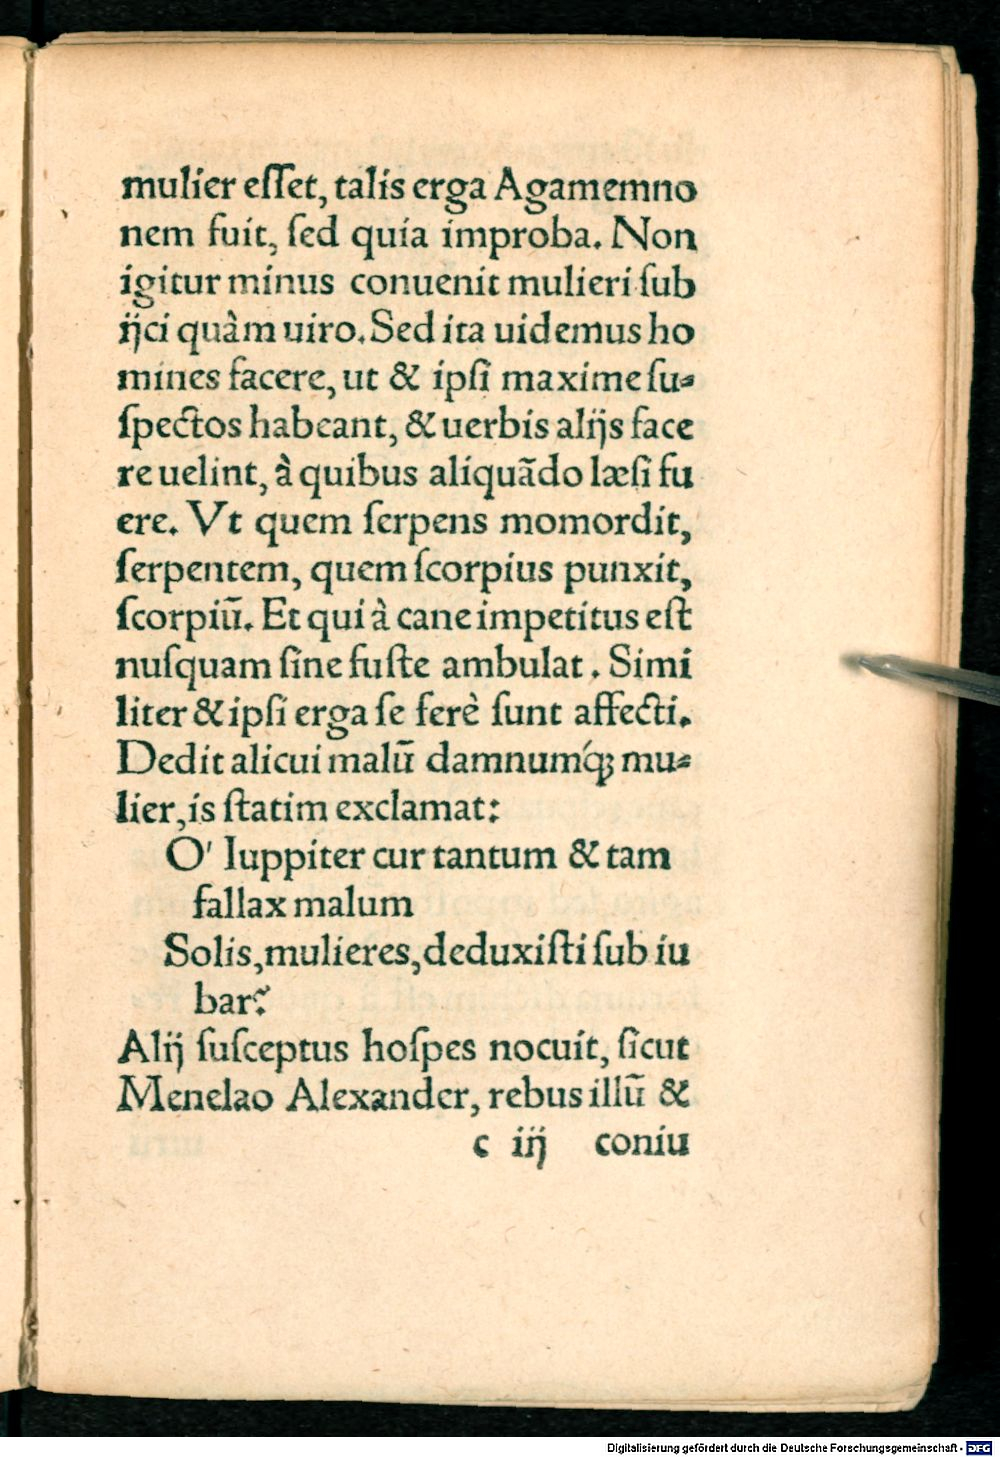 mulier eſſet, talis erga Agamemno
nem fuit, ſed quia improba. Non
igitur minus conuenit mulieri ſub
ijci quàm uiro. Sed ita uidemus ho
mines facere, ut & ipſi maxime ſu-
ſpectos habeant, & uerbis alijs face
re uelint, à quibus aliquãdo læſi fu
ere. Vt quem ſerpens momordit,
ſerpentem, quem ſcorpius punxit,
ſcorpiũ. Et qui à cane impetitus eſt
nuſquam ſine fuſte ambulat. Simi
liter & ipſi erga ſe ferè ſunt affecti.
Dedit alicui malũ damnumq́ꝫ mu-
lier, is ſtatim exclamat:
O' Iuppiter cur tantum & tam
fallax malum
Solis, mulieres, deduxiſti ſub iu
bar?
Alij ſuſceptus hoſpes nocuit, ſicut
Menelao Alexander, rebus illũ &
c iij coniu
Digitalisierung gefördert durch die Deutsche Forschungsgemeinschaft - DFG